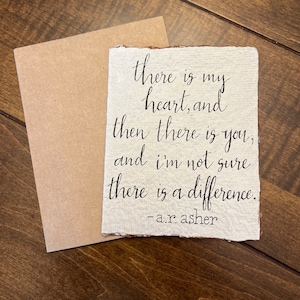 there is my
heart, and
then there is you,
and i'm not sure
there is a difference.
-a.r. asher